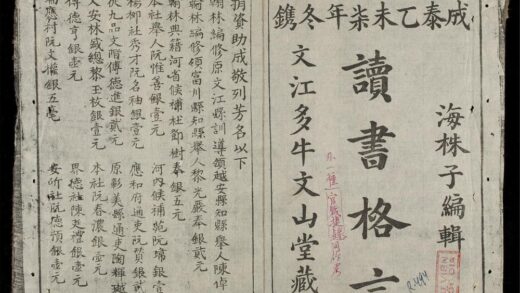 成泰乙未柒年冬鐫
海株子編輯
讀書格言
文江多牛文山堂藏
捐資助成敬列芳名以下
翰林編修原文江縣訓導領越安縣知縣舉人陳焯
翰林編修領富川縣知縣舉人黎光嚴奉銀貳元
翰林典籍河省候補杜節樹奉銀五元
本社舉人阮惟善銀壹元 河内候補阮瑞銀壹
楊柳社秀才阮名袖銀壹元 應和府通吏阮質銀貳
九品文階傅德進銀貳元 原彰美縣通吏陶輝
人安林總黎玉枚銀壹元 本社阮春濃銀壹元
德亨銀壹元 界德社陳廷禮銀壹元
村阮文權銀五毫 安所社阮德預銀壹元